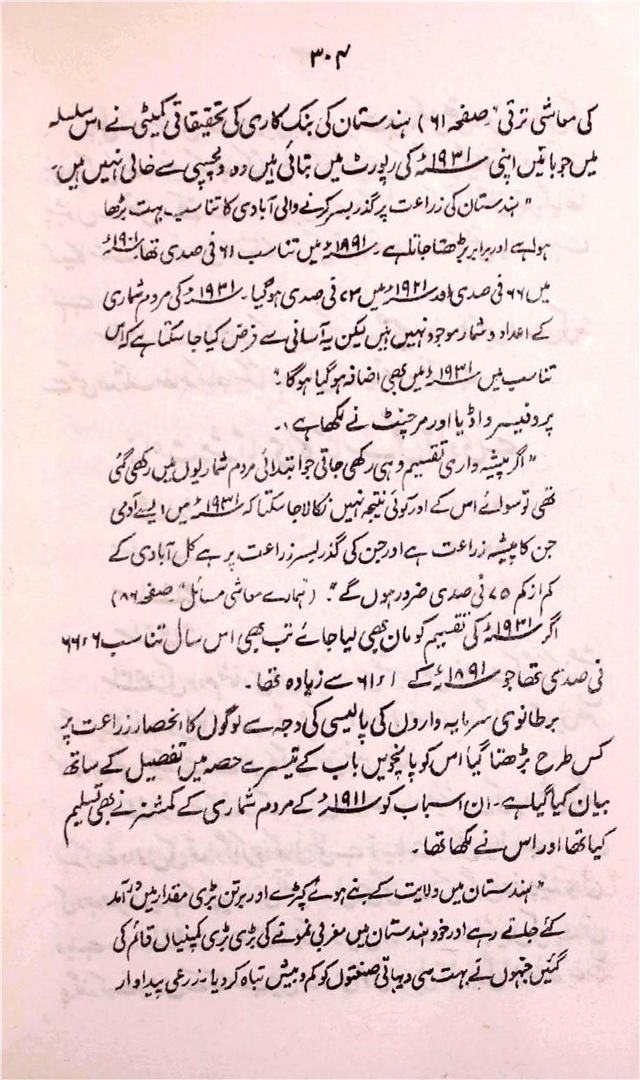 ۳۰۴
کی معاشی ترقی" صفحہ ۶۱) ہندستان کی بنک کاری کی تحقیقاتی کمیٹی نے اس سلسلہ
میں جو باتیں اپنی ۱۹۳۱ء کی رپورٹ میں بتائی ہیں وہ دلچسپی سے خالی نہیں ہیں۔
"ہندستان کی زراعت پر گذر بسر کرنے والی آبادی کا تناسب بہت بڑھا
ہوا ہے اور برابر بڑھتا جاتا ہے۔ ۱۸۹۱ء میں تناسب ۶۱ فی صدی تھا۔ ۱۹۰۱ء
میں ۶۶ فی صدی اور ۱۹۲۱ء میں ۷۳ فی صدی ہو گیا۔ ۱۹۳۱ء کی مردم شماری
کے اعداد و شمار موجود نہیں ہیں لیکن یہ آسانی سے فرض کیا جا سکتا ہے کہ اس
تناسب میں ۱۹۳۱ء میں بھی اضافہ ہو گیا ہوگا۔"
پروفیسر واڈیا اور مرچنٹ نے لکھا ہے:۔
"اگر پیشہ واری تقسیم وہی رکھی جاتی جو ابتدائی مردم شماریوں میں رکھی گئی
تھی تو سوائے اس کے اور کوئی نتیجہ نہیں نکالا جا سکتا کہ ۱۹۳۱ء میں ایسے آدمی
جن کا پیشہ زراعت ہے اور جن کی گذر بسر زراعت پر ہے کل آبادی کے
کم از کم ۷۵ فی صدی ضرور ہوں گے"۔ (ہمارے معاشی مسائل" صفحہ ۸۶)
اگر ۱۹۳۱ء کی تقسیم کو مان بھی لیا جائے تب بھی اس سال تناسب ۶ء۶۶
فی صدی تھا جو ۱۸۹۱ء کے ۱ء۶۱ سے زیادہ تھا۔
برطانوی سرمایہ داروں کی پالیسی کی وجہ سے لوگوں کا انحصار زراعت پر
کس طرح بڑھتا گیا اس کو پانچویں باب کے تیسرے حصہ میں تفصیل کے ساتھ
بیان کیا گیا ہے۔ ان اسباب کو ۱۹۱۱ء کے مردم شماری کے کمشنر نے بھی تسلیم
کیا تھا اور اس نے لکھا تھا۔
"ہندستان میں ولایت کے بنے ہوئے کپڑے اور برتن بڑی مقدار میں در آمد
کئے جاتے رہے اور خود ہندستان میں مغربی نمونے کی بڑی بڑی کمپنیاں قائم کی
گئیں جنہوں نے بہت سی دیہاتی صنعتوں کو کم و بیش تباہ کر دیا۔ زرعی پیداوار